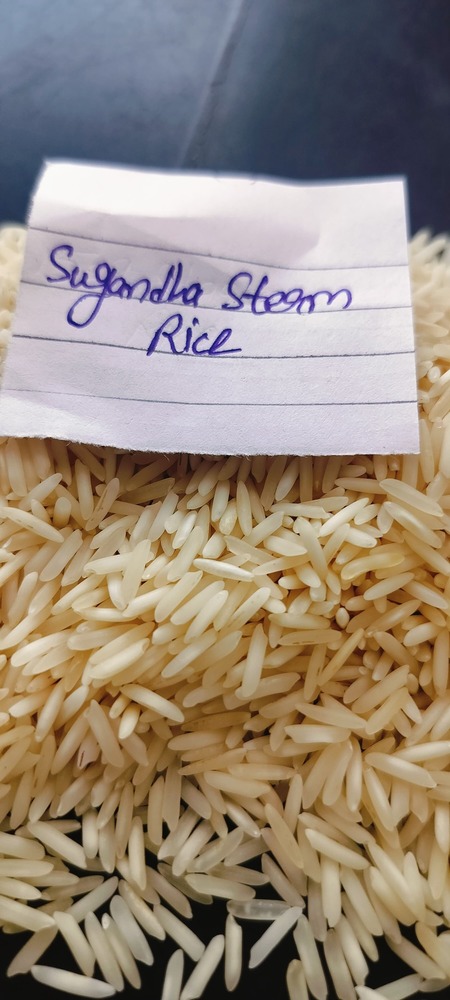 Sugandha Steam
Rice